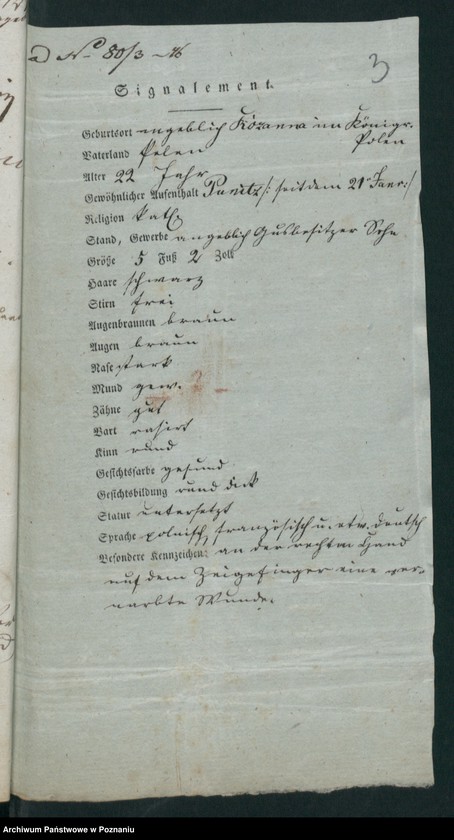 ad No 80/3
3
Signalement.
Geburtsort angeblich Kozanna im Königr.
Polen
Vaterland Polen
Alter 22 Jahr
Gewöhnlicher Aufenthalt Punitz /: seit dem 21 Janr :/
Religion kath
Stand, Gewerbe angeblich Gutsbesitzer Sohn
Größe 5 Fuß 2 Zoll
Haare schwarz
Stirn frei
Augenbraunen braun
Augen braun
Nase stark
Mund gew.
Zähne gut
Bart rasirt
Kinn rund
Gesichtsfarbe gesund
Gesichtsbildung rund dick
Statur untersetzt
Sprache polnisch, französisch u. etw. deutsch
Besondere Kennzeichen: an der rechten Hand
auf dem Zeigefinger eine ver-
narbte Wunde.
Archiwum Państwowe w Poznaniu